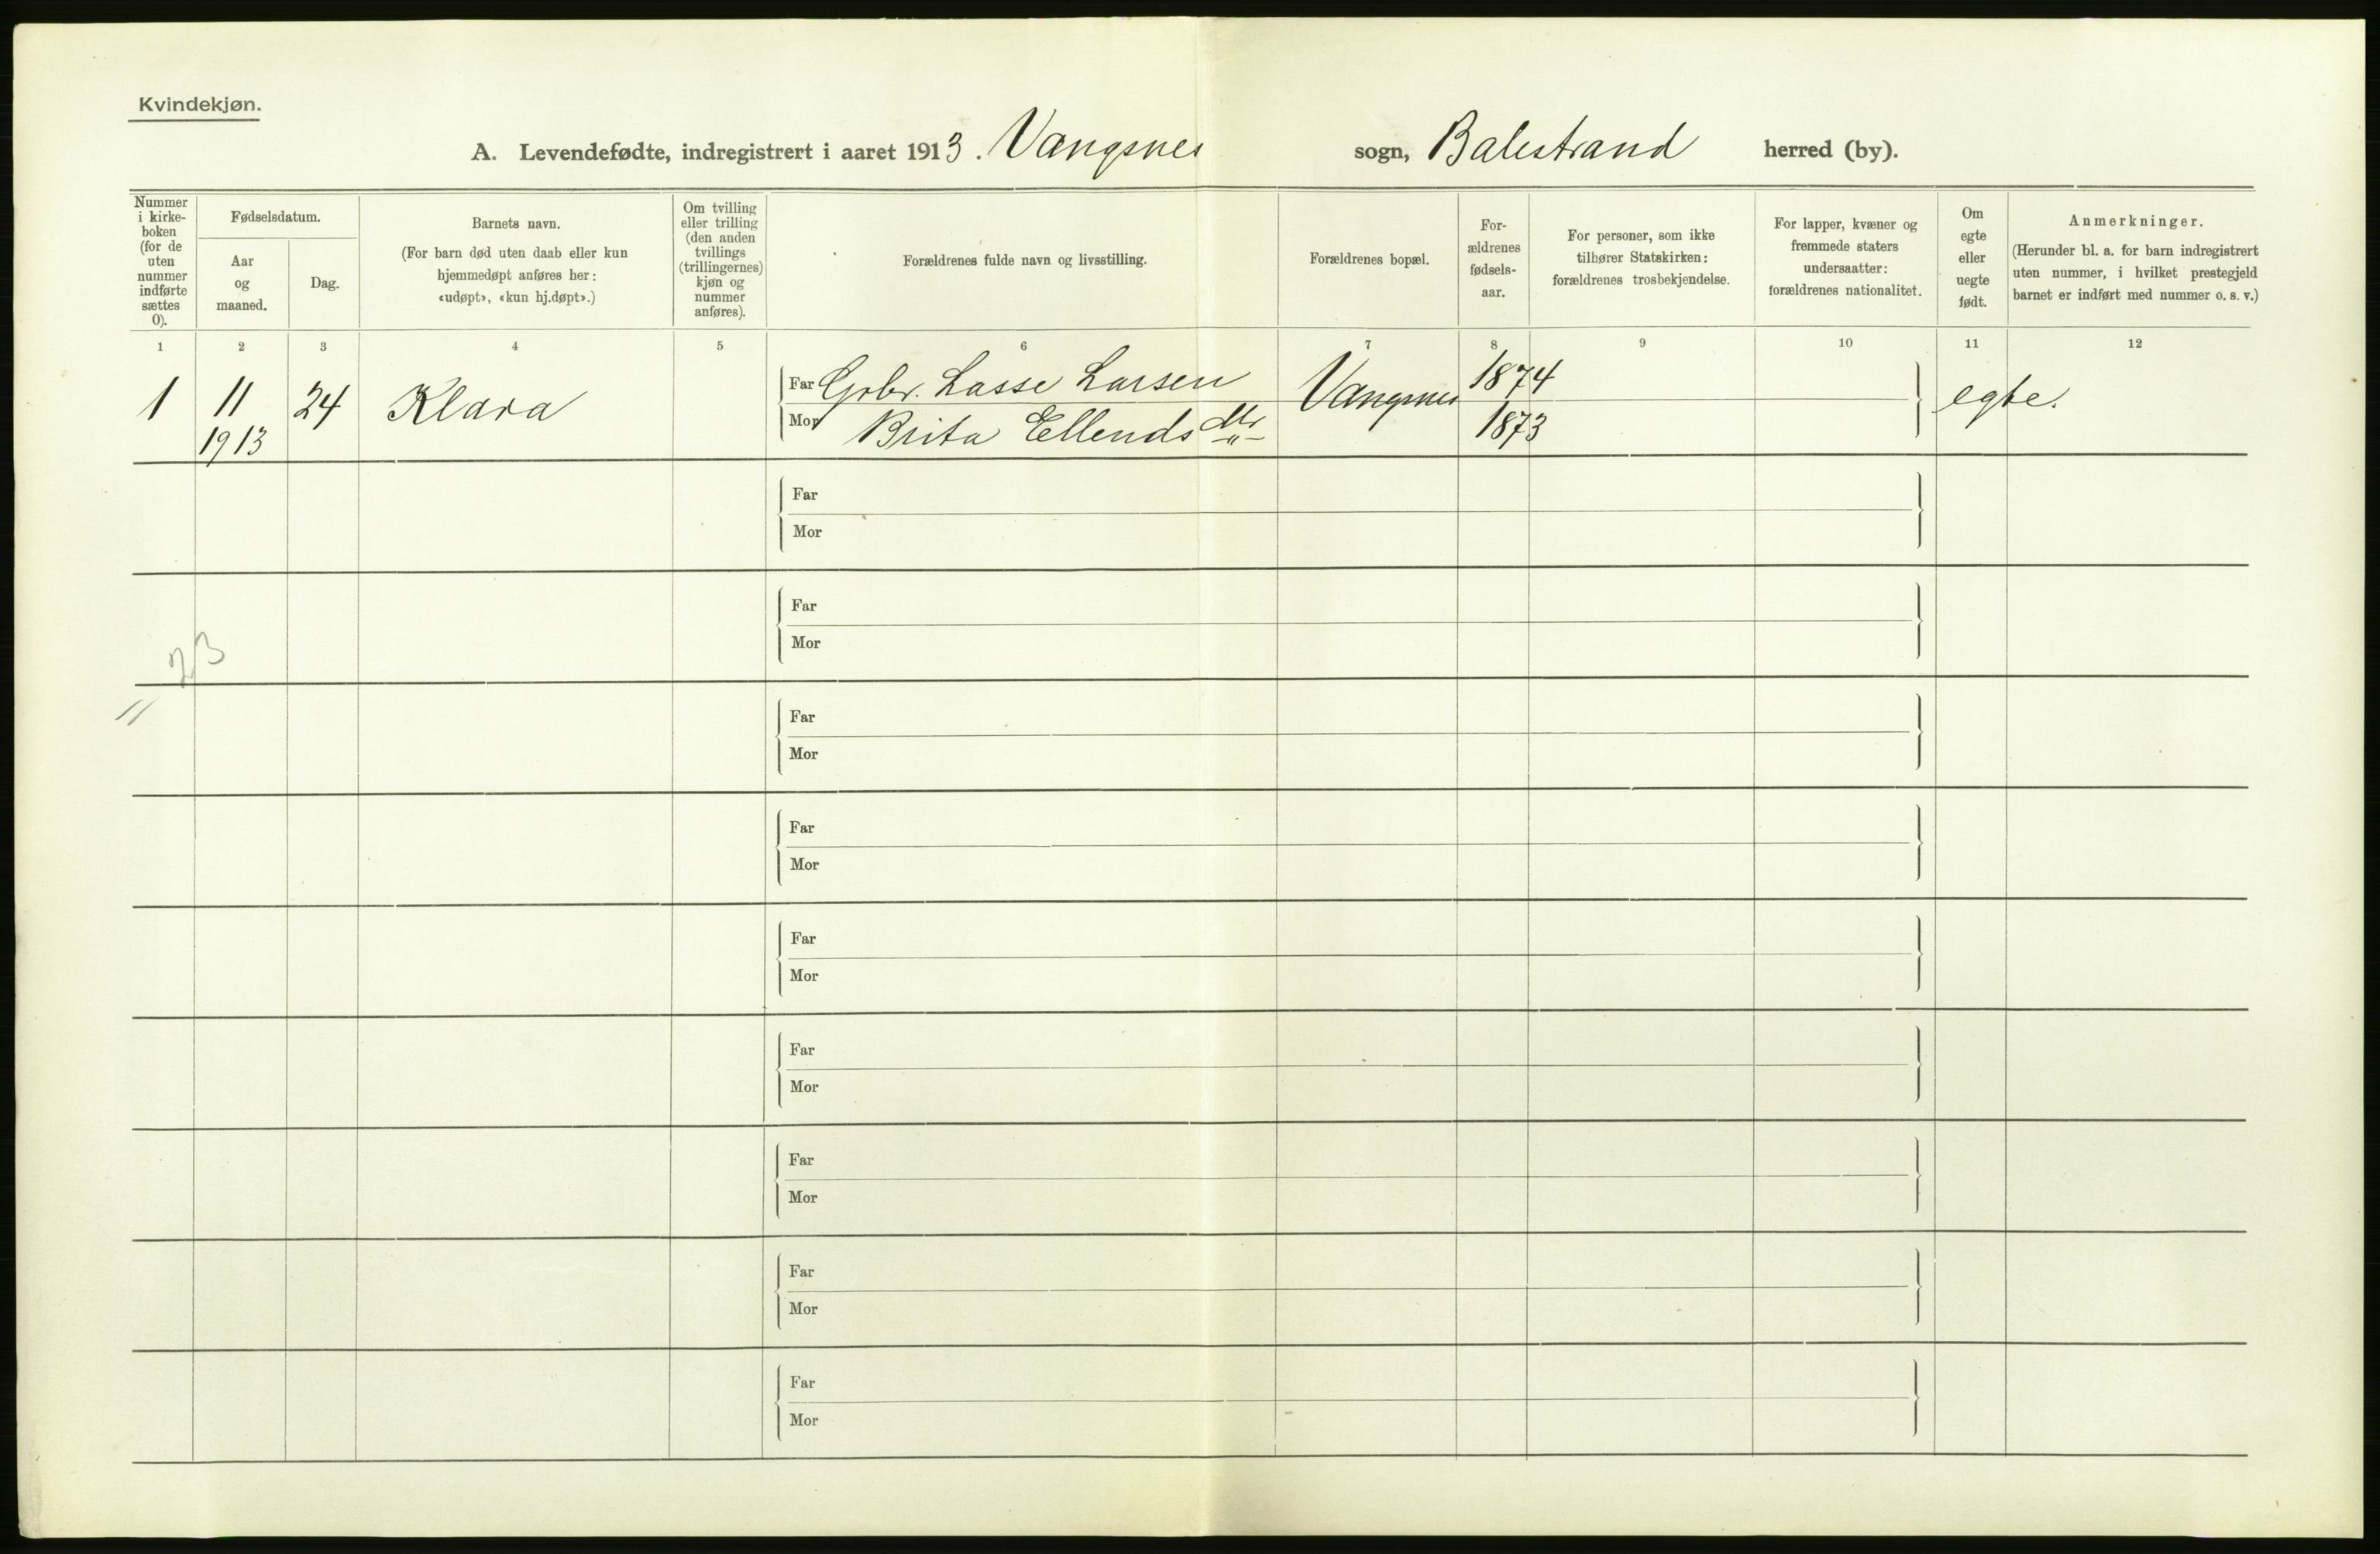 Kvindekjøn.
A. Levendefødte, indregistrert i aaret 1913. Vangsnes sogn, Balestrand herred (by).
Nummer i kirke-boken (for de uten nummer indførte sættes 0).
Fødselsdatum.
Aar og maaned.
Dag.
Barnets navn.
(For barn død uten daab eller kun hjemmedøpt anføres her: «udøpt», «kun hj.døpt».)
Om tvilling eller trilling (den anden tvillings (trillingernes) kjøn og nummer anføres).
Forældrenes fulde navn og livsstilling.
Forældrenes bopæl.
For-ældrenes fødsels-aar.
For personer, som ikke tilhører Statskirken: forældrenes trosbekjendelse.
For lapper, kvæner og fremmede staters undersaatter: forældrenes nationalitet.
Om egte eller uegte født.
Anmerkninger.
(Herunder bl. a. for barn indregistrert uten nummer, i hvilket prestegjeld barnet er indført med nummer o. s. v.)
1 2 3 4 5 6 7 8 9 10 11 12
1 11 24 Klara Far Grbr. Lasse Larsen Vangsnes 1874 egte.
1913 Mor Brita Ellends dtr -"- 1873
Far
Mor
Far
Mor
23
Far
Mor
Far
Mor
Far
Mor
Far
Mor
Far
Mor
Far
Mor
Far
Mor